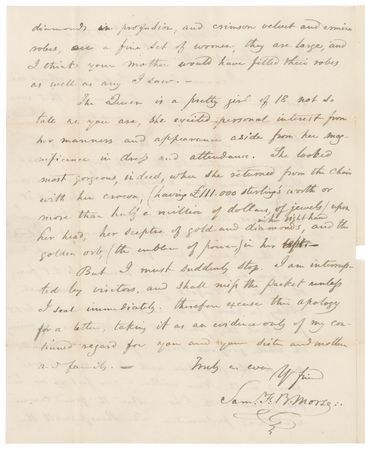 diamonds in profusion, and crimson velvet and ermine
robes, are a fine set of women, they are large, and
I think your mother would have filled their robes
as well as any I saw. —
The Queen is a pretty girl of 18 not so
tall as you are, she excited personal interest from
her manners and appearance aside from her mag-
nificence in dress and attendance. She looked
most gorgeous, indeed, when she returned from the Choir
with her crown, (having £111.000 sterling's worth or
more than half a million of dollars, of jewels) upon
her head, her sceptre of gold and diamonds, in her right hand and the
golden orb, (the emblem of power,) in her left. —
But I must suddenly stop. I am interrup-
ted by visitors, and shall miss the packet unless
I seal immediately. therefore excuse this apology
for a letter, taking it as an evidence only of my con-
tinued regard for you and your sister and mother
and family. —
Truly as ever
Yr frie
Saml. F. B. Morse.